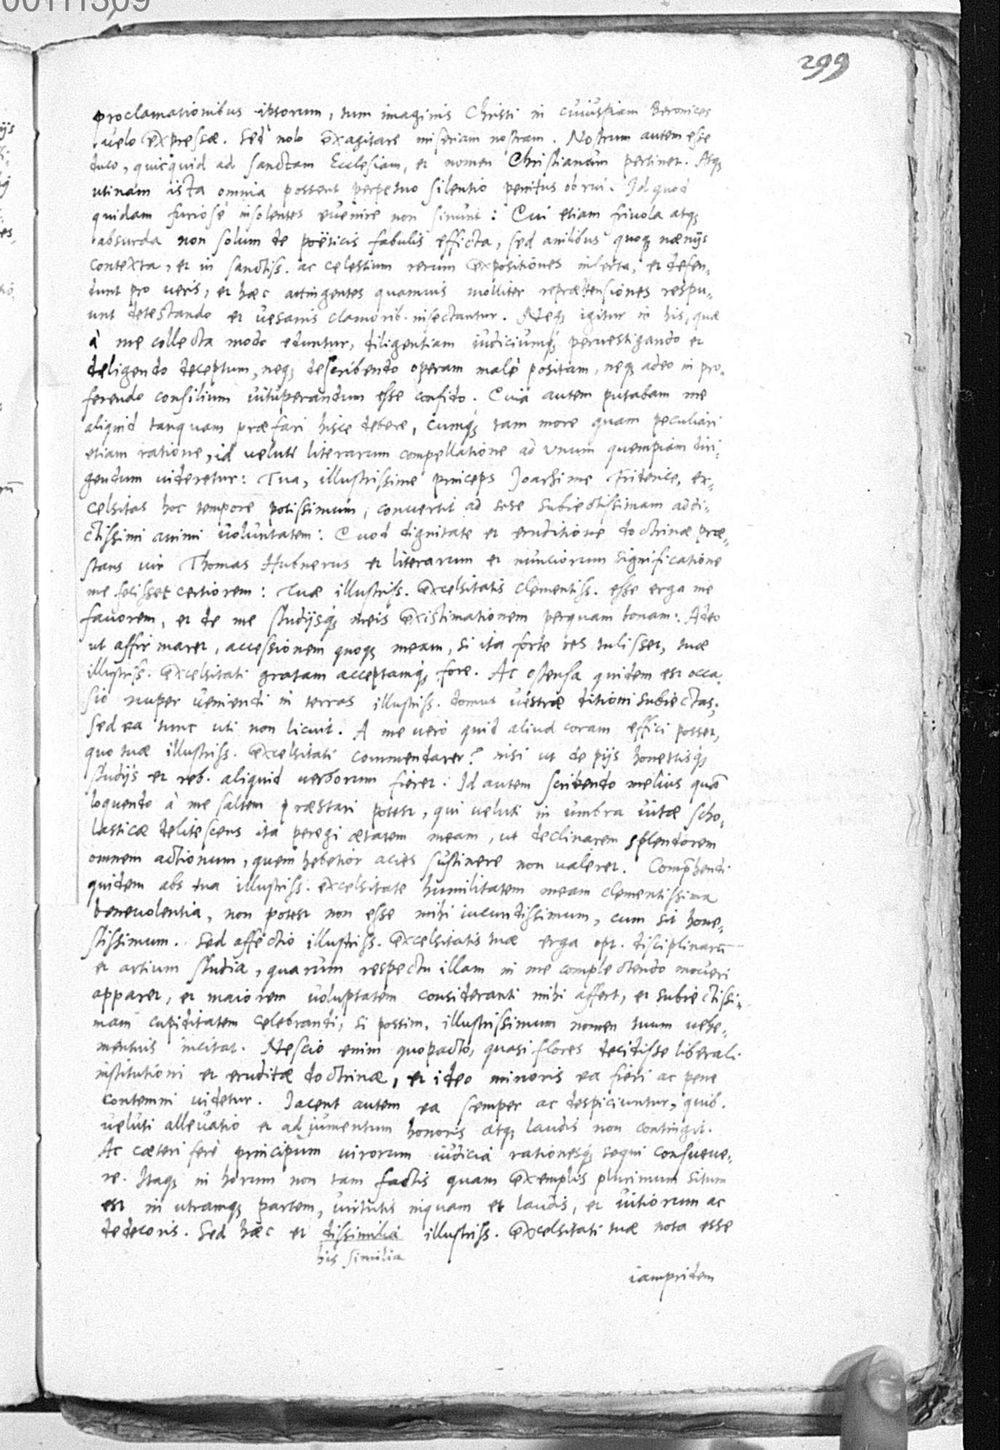 00111309
299
proclamationibus ipsorum, tum imaginis Christi in cuiuspiam Beronices
velo expressae. Sed nolo exagitare miseriam nostram. Nostrum autem esse
duco, quicquid ad sanctam Ecclesiam, et nomen Christianum pertinet. Atq;
utinam ista omnia possent perpetuo silentio penitus obrui. Id quod
quidam furiosè insolentes evenire non sinunt: Cui etiam frivola atq;
absurda non solum de poëticis fabulis efficta, sed anilibus quoq; næniis
contexta, et in sanctiss. ac celestium rerum expositiones inserta, et defen-
dunt pro veris, et hæc attingentes quamvis molliter repræhensiones respu-
unt detestando et vesanis clamorib. insectantur. Neq; igitur in his, quæ
à me collecta modo eduntur, diligentiam iudiciumq; pervestigando et
deligendo deceptum, neq; describendo operam malè positam, neq; adeo in pro-
ferendo consilium vituperandum esse confido. Quia autem putabam me
aliquid tanquam præfari hisce debere, cumq; tam more quam peculiari
etiam ratione, id veluti literarum compellatione ad unum quempiam diri-
gendum videretur: Tua, illustrissime princeps Joachime Friderice, ex-
celsitas hoc tempore potissimum, convertit ad sese subiectissimam addi-
ctissimi animi voluntatem: Quod dignitate et eruditione doctrinæ præ-
stans vir Thomas Hubnerus et literarum et nunciorum significatione
me fecisset certiorem: Tuæ illustriss. excelsitatis clementiss. esse erga me
favorem, et de me studijsq; meis existimationem perquam bonam: Adeo
ut affirmaret, accessionem quoq; meam, si ita forte res tulisset, tuæ
illustriss. excelsitati gratam acceptamq; fore. Ac ostensa quidem est occa-
sio nuper veniendi in terras illustriss. domus vestræ ditioni subiectas:
Sed ea tunc uti non licuit. A me verò quid aliud coram effici posset,
quo tuæ illustriss. excelsitati commendarer? nisi ut de pijs honestisq;
studijs et reb. aliquid verborum fieret: Id autem scribendo melius quā
loquendo à me saltem præstari potest, qui veluti in umbra vitæ scho-
lasticæ delitescens ita peregi ætatem meam, ut declinarem splendorem
omnem actionum, quem hebetior acies sustinere non valeret. Comp̄hendi
quidem abs tua illustriss. excelsitate humilitatem meam clementissima
benevolentia, non potest non esse mihi iucundissimum, cum sit hone-
stissimum. Sed affectio illustriss. excelsitatis tuæ erga opt. disciplinarū
et artium studia, quarum respectu illam in me complectendo moveri
apparet, et maiorem voluptatem consideranti mihi affert, et subiectissi-
mam cupiditatem celebrandi, si possim, illustrissimum nomen tuum vehe-
mentius incitat. Nescio enim quo pacto, quasi flores decidisse liberali
institutioni et eruditæ doctrinæ, et ideo minoris ea fieri ac pene
contemni videtur. Iacent autem ea semper ac despiciuntur, quib.
veluti allevatio et adjumentum honoris atq; laudis non contingit.
Ac cæteri ferè principum virorum iudicia rationesq; sequi consueve-
re. Itaq; in horum non tam factis quam exemplis plurimum situm
est in utramq; partem, virtutis inquam et laudis, et vitiorum ac
dedecoris. Sed hæc et dissimilia illustriss. excelsitati tuæ nota esse
his similia
iampridem